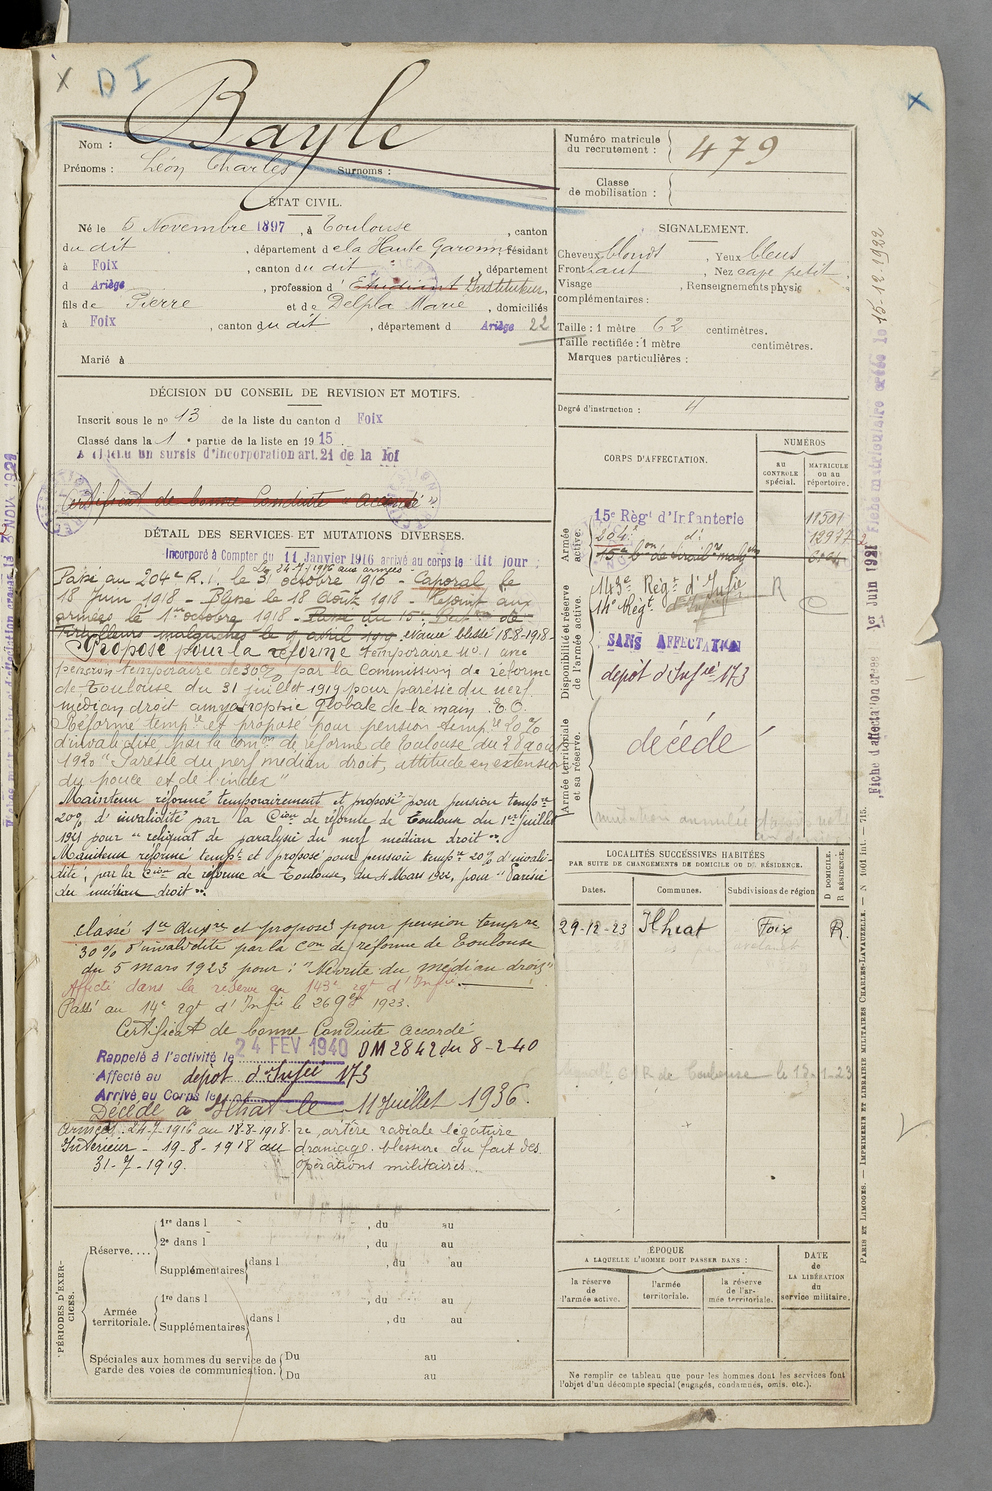 D I
Bayle
Nom :
Prénoms : Léon Charles Surnoms :
ÉTAT CIVIL.
Né le 5 Novembre 1897, à Toulouse, canton
du dit, département de la Haute Garonne, résidant
à Foix, canton du dit, département
d Ariège, profession d'Etudiant Instituteur,
fils de Pierre et de Delpla Marie, domiciliés
à Foix, canton du dit, département d Ariège 22
Marié à
DÉCISION DU CONSEIL DE REVISION ET MOTIFS.
Inscrit sous le nº 13 de la liste du canton d Foix
Classé dans la 1 e partie de la liste en 1915
A obtenu un sursis d'incorporation art. 21 de la loi
Certificat de bonne Conduite "Accordé"
DÉTAIL DES SERVICES ET MUTATIONS DIVERSES.
Incorporé à Compter du 11 Janvier 1916 arrivé au corps le dit jour
Le 24-7-1916 aux armées -
Passé au 204e R.I. le 31 octobre 1916 - Caporal le
18 Juin 1918 - Blessé le 18 Août 1918 - Rejoint aux
armées le 1er octobre 1918 - Passé du 15e Bat on de
Tirailleurs malgaches le 9 avril 1919 blessé 18-8-1918-
Proposé pour la réforme temporaire No 1 avec
pension temporaire de 30% par la Commission de réforme
de Toulouse du 31 juillet 1919 pour parésie du nerf
médian droit amyotrophie globale de la main. E.O.
Réformé temp re et proposé pour pension temp re 20%
d'invalidité par la Com on de réforme de Toulouse du 28 aout
1920 "Parésie du nerf médian droit, attitude en extension
du pouce et de l'index"
Maintenu réformé temporairement et proposé pour pension temp re
20% d'invalidité par la C ion de réforme de Toulouse du 1er Juillet
1921 pour "reliquat de paralysie du nerf médian droit".
Maintenu réformé temp t et proposé pour pension temp re 20% d'invali-
dité, par la C ion de réforme de Toulouse, du 4 Mars 1922, pour "Parésie
du médian droit".
Classé 1er aux re et proposé pour pension temp re
30% d'invalidité par la C on de réforme de Toulouse
du 5 mars 1923 pour : "Névrite du médian droit"
Affecté dans la réserve au 143e rgt d'Inf ie
Passé au 14e rgt d'Inf ie le 26 9bre 1923.
Certificat de bonne Conduite accordé
Rappelé à l'activité le 24 FEV 1940 DM 2842 du 8-2-40
Affecté au dépot d'Inf ie 173
Arrivé au Corps le
Décédé à Ilhat le 11 Juillet 1936.
Armées : 24-7-1916 au 18-8-1918
Intérieur - 19-8-1918 au
31-7-1919.
artère radiale ligature
drainage. blessure du fait des
opérations militaires.
PÉRIODES D'EXER-
CICES.
Réserve....
1re dans l , du au
2e dans l , du au
Supplémentaires dans l , du au
Armée
territoriale.
1re dans l , du au
Supplémentaires dans l , du au
Spéciales aux hommes du service de
garde des voies de communication.
Du au
Du au
Numéro matricule
du recrutement : 479
Classe
de mobilisation :
SIGNALEMENT.
Cheveux blonds, Yeux bleus
Front haut, Nez cave petit
Visage , Renseignements physio
complémentaires :
Taille : 1 mètre 62 centimètres.
Taille rectifiée : 1 mètre centimètres.
Marques particulières :
Degré d'instruction : 4
CORPS D'AFFECTATION.
NUMÉROS
AU
CONTROLE
spécial.
MATRICULE
OU AU
répertoire.
Armée
active.
15e Règt d'Infanterie 11501
204e d° 13977
15e b on de tirail rs malg.
Disponibilité et réserve
de l'armée active.
143e Régt d'Inf ie R
14e Régt d'Inf ie
SANS AFFECTATION
dépot d'Inf ie 173
Armée territoriale
et sa réserve.
décédé
mutation annulée
LOCALITÉS SUCCESSIVES HABITÉES
PAR SUITE DE CHANGEMENTS DE DOMICILE OU DE RÉSIDENCE.
Dates. Communes. Subdivisions de région
D DOMICILE.
R RÉSIDENCE.
29-12-23 Ilhat Foix R.
ÉPOQUE
A LAQUELLE L'HOMME DOIT PASSER DANS :
la réserve
de
l'armée active.
l'armée
territoriale.
la réserve
de l'ar-
mée territoriale.
DATE
de
LA LIBÉRATION
du
service militaire.
Ne remplir ce tableau que pour les hommes dont les services font
l'objet d'un décompte spécial (engagés, condamnés, omis, etc.).
Fiche matriculaire créée le 15-12-1922
Fiche d'affectation créée 1er Juin 1921
PARIS ET LIMOGES. — IMPRIMERIE ET LIBRAIRIE MILITAIRES CHARLES-LAVAUZELLE. — N° 1061 Int. — 715.